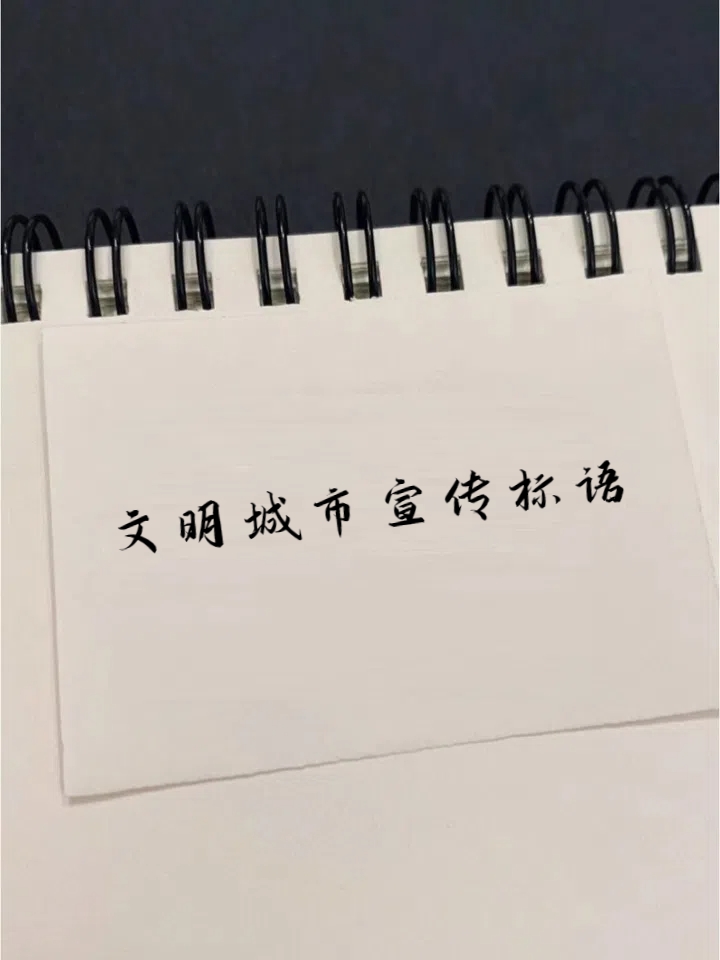 文明城市宣传标语